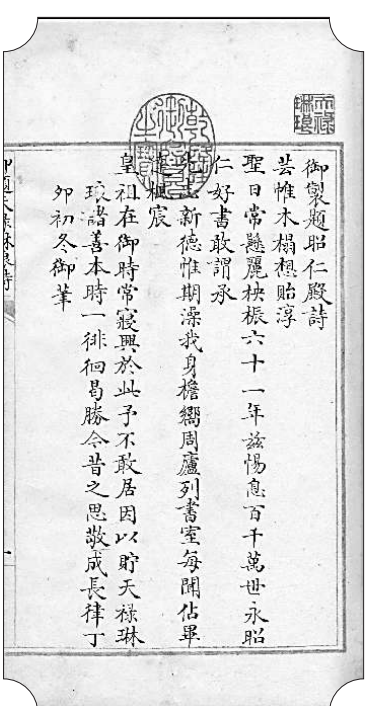 天祿琳琅
乾隆御覽之寶
御製題昭仁殿詩
芸帷木榻想貽淳
聖日常懸麗柍桭六十一年兹惕息百千萬世永昭
仁好書敢謂承
志新德惟期澡我身檐嚮周廬列書室每聞佔畢
達楓宸
皇祖在御時常寢興於此予不敢居因以貯天祿琳
琅諸善本時一徘徊曷勝今昔之思敬成長律丁
卯初冬御筆
御題天祿琳琅詩
一